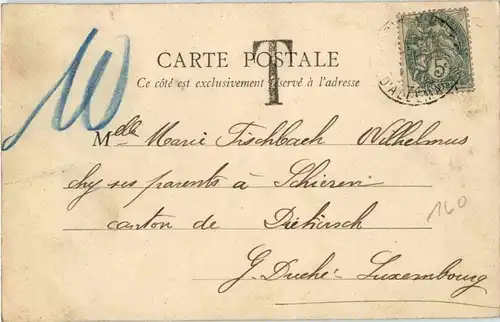 10
T
CARTE POSTALE
Ce côté est exclusivement réservé à l'adresse
5c
Melle Marie Fischbach Wilhelmus
chy ses parents à Schieren
canton de Diekirsch
G. Duché-Luxembourg
160